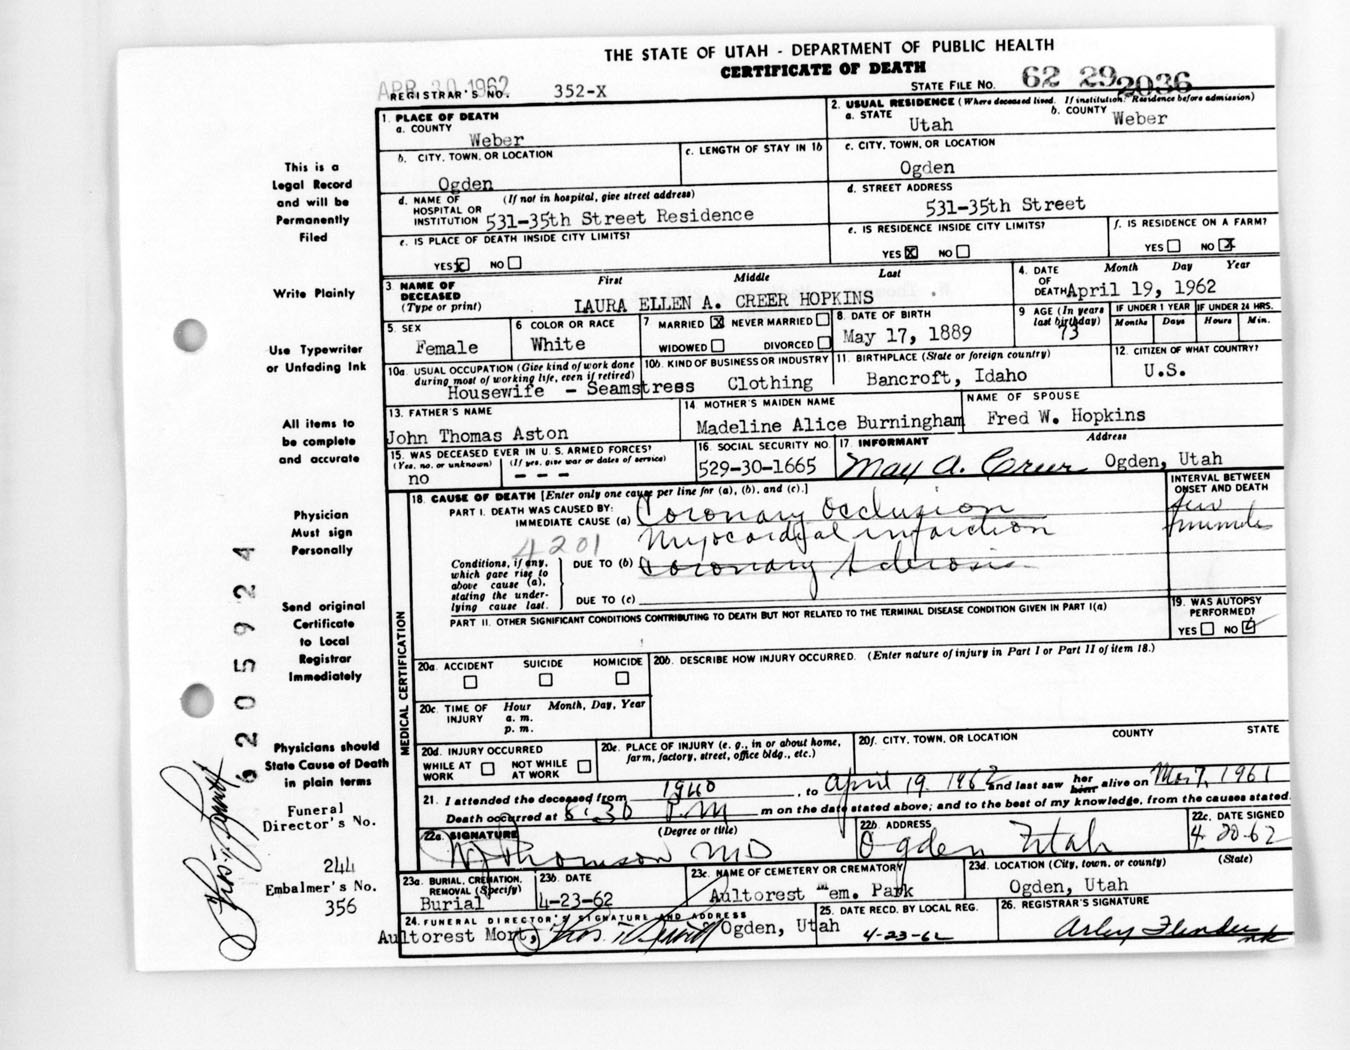 THE STATE OF UTAH - DEPARTMENT OF PUBLIC HEALTH
CERTIFICATE OF DEATH
APR 30 1962
REGISTRAR'S NO. 352-X
STATE FILE NO. 62 29 2036
1. PLACE OF DEATH
a. COUNTY
Weber
2. USUAL RESIDENCE (Where deceased lived. If institution: Residence before admission)
a. STATE Utah b. COUNTY Weber
b. CITY, TOWN, OR LOCATION
Ogden
c. LENGTH OF STAY IN 1b
c. CITY, TOWN, OR LOCATION
Ogden
d. NAME OF HOSPITAL OR INSTITUTION (If not in hospital, give street address)
531-35th Street Residence
d. STREET ADDRESS
531-35th Street
e. IS PLACE OF DEATH INSIDE CITY LIMITS?
YES X NO
e. IS RESIDENCE INSIDE CITY LIMITS?
YES X NO
f. IS RESIDENCE ON A FARM?
YES NO X
3. NAME OF DECEASED (Type or print)
First Middle Last
LAURA ELLEN A. CREER HOPKINS
4. DATE OF DEATH Month Day Year
April 19, 1962
5. SEX
Female
6. COLOR OR RACE
White
7. MARRIED X NEVER MARRIED
WIDOWED DIVORCED
8. DATE OF BIRTH
May 17, 1889
9. AGE (In years last birthday)
73
IF UNDER 1 YEAR
Months Days
IF UNDER 24 HRS.
Hours Min.
10a. USUAL OCCUPATION (Give kind of work done during most of working life, even if retired)
Housewife - Seamstress
10b. KIND OF BUSINESS OR INDUSTRY
Clothing
11. BIRTHPLACE (State or foreign country)
Bancroft, Idaho
12. CITIZEN OF WHAT COUNTRY?
U.S.
13. FATHER'S NAME
John Thomas Aston
14. MOTHER'S MAIDEN NAME
Madeline Alice Burningham
NAME OF SPOUSE
Fred W. Hopkins
15. WAS DECEASED EVER IN U.S. ARMED FORCES?
(Yes, no, or unknown) (If yes, give war or dates of service)
no - - -
16. SOCIAL SECURITY NO.
529-30-1665
17. INFORMANT Address
May A. Creer Ogden, Utah
18. CAUSE OF DEATH [Enter only one cause per line for (a), (b), and (c).]
PART I. DEATH WAS CAUSED BY:
IMMEDIATE CAUSE (a) Coronary Occlusion
Myocardial infarction
4201
Conditions, if any, which gave rise to above cause (a), stating the underlying cause last.
DUE TO (b) Coronary Sclerosis
DUE TO (c)
INTERVAL BETWEEN ONSET AND DEATH
few
PART II. OTHER SIGNIFICANT CONDITIONS CONTRIBUTING TO DEATH BUT NOT RELATED TO THE TERMINAL DISEASE CONDITION GIVEN IN PART I(a)
19. WAS AUTOPSY PERFORMED?
YES NO
MEDICAL CERTIFICATION
20a. ACCIDENT SUICIDE HOMICIDE
20b. DESCRIBE HOW INJURY OCCURRED. (Enter nature of injury in Part I or Part II of item 18.)
20c. TIME OF INJURY Hour Month, Day, Year
a. m.
p. m.
20d. INJURY OCCURRED
WHILE AT WORK NOT WHILE AT WORK
20e. PLACE OF INJURY (e. g., in or about home, farm, factory, street, office bldg., etc.)
20f. CITY, TOWN, OR LOCATION COUNTY STATE
21. I attended the deceased from 1940, to April 19 1962 and last saw her him alive on Mar 7, 1961
Death occurred at 8:30 P.M m on the date stated above; and to the best of my knowledge, from the causes stated.
22a. SIGNATURE (Degree or title)
Thomson MD
22b. ADDRESS
Ogden Utah
22c. DATE SIGNED
4-20-62
23a. BURIAL, CREMATION, REMOVAL (Specify)
Burial
23b. DATE
4-23-62
23c. NAME OF CEMETERY OR CREMATORY
Aultorest Mem. Park
23d. LOCATION (City, town, or county) (State)
Ogden, Utah
24. FUNERAL DIRECTOR'S SIGNATURE AND ADDRESS
Aultorest Mort, Ogden, Utah
25. DATE RECD. BY LOCAL REG.
4-23-62
26. REGISTRAR'S SIGNATURE
This is a
Legal Record
and will be
Permanently
Filed
Write Plainly
Use Typewriter
or Unfading Ink
All items to
be complete
and accurate
Physician
Must sign
Personally
Send original
Certificate
to Local
Registrar
Immediately
Physicians should
State Cause of Death
in plain terms
Funeral
Director's No.
244
Embalmer's No.
356
62059 24